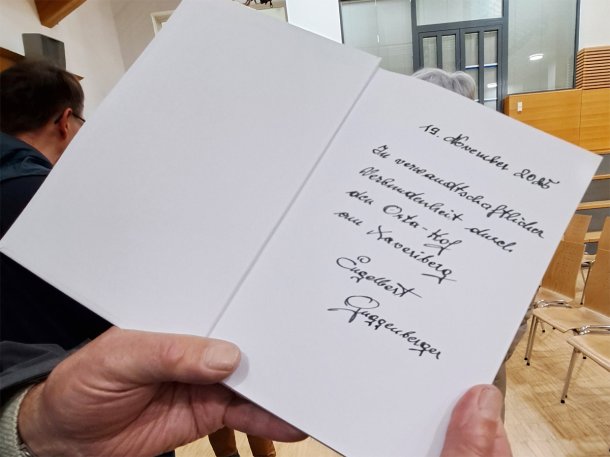 19. November 2025
In verwandtschaftlicher
Verbundenheit durch
den Orta-Hof
am Xaveriberg
Engelbert
Guggenberger